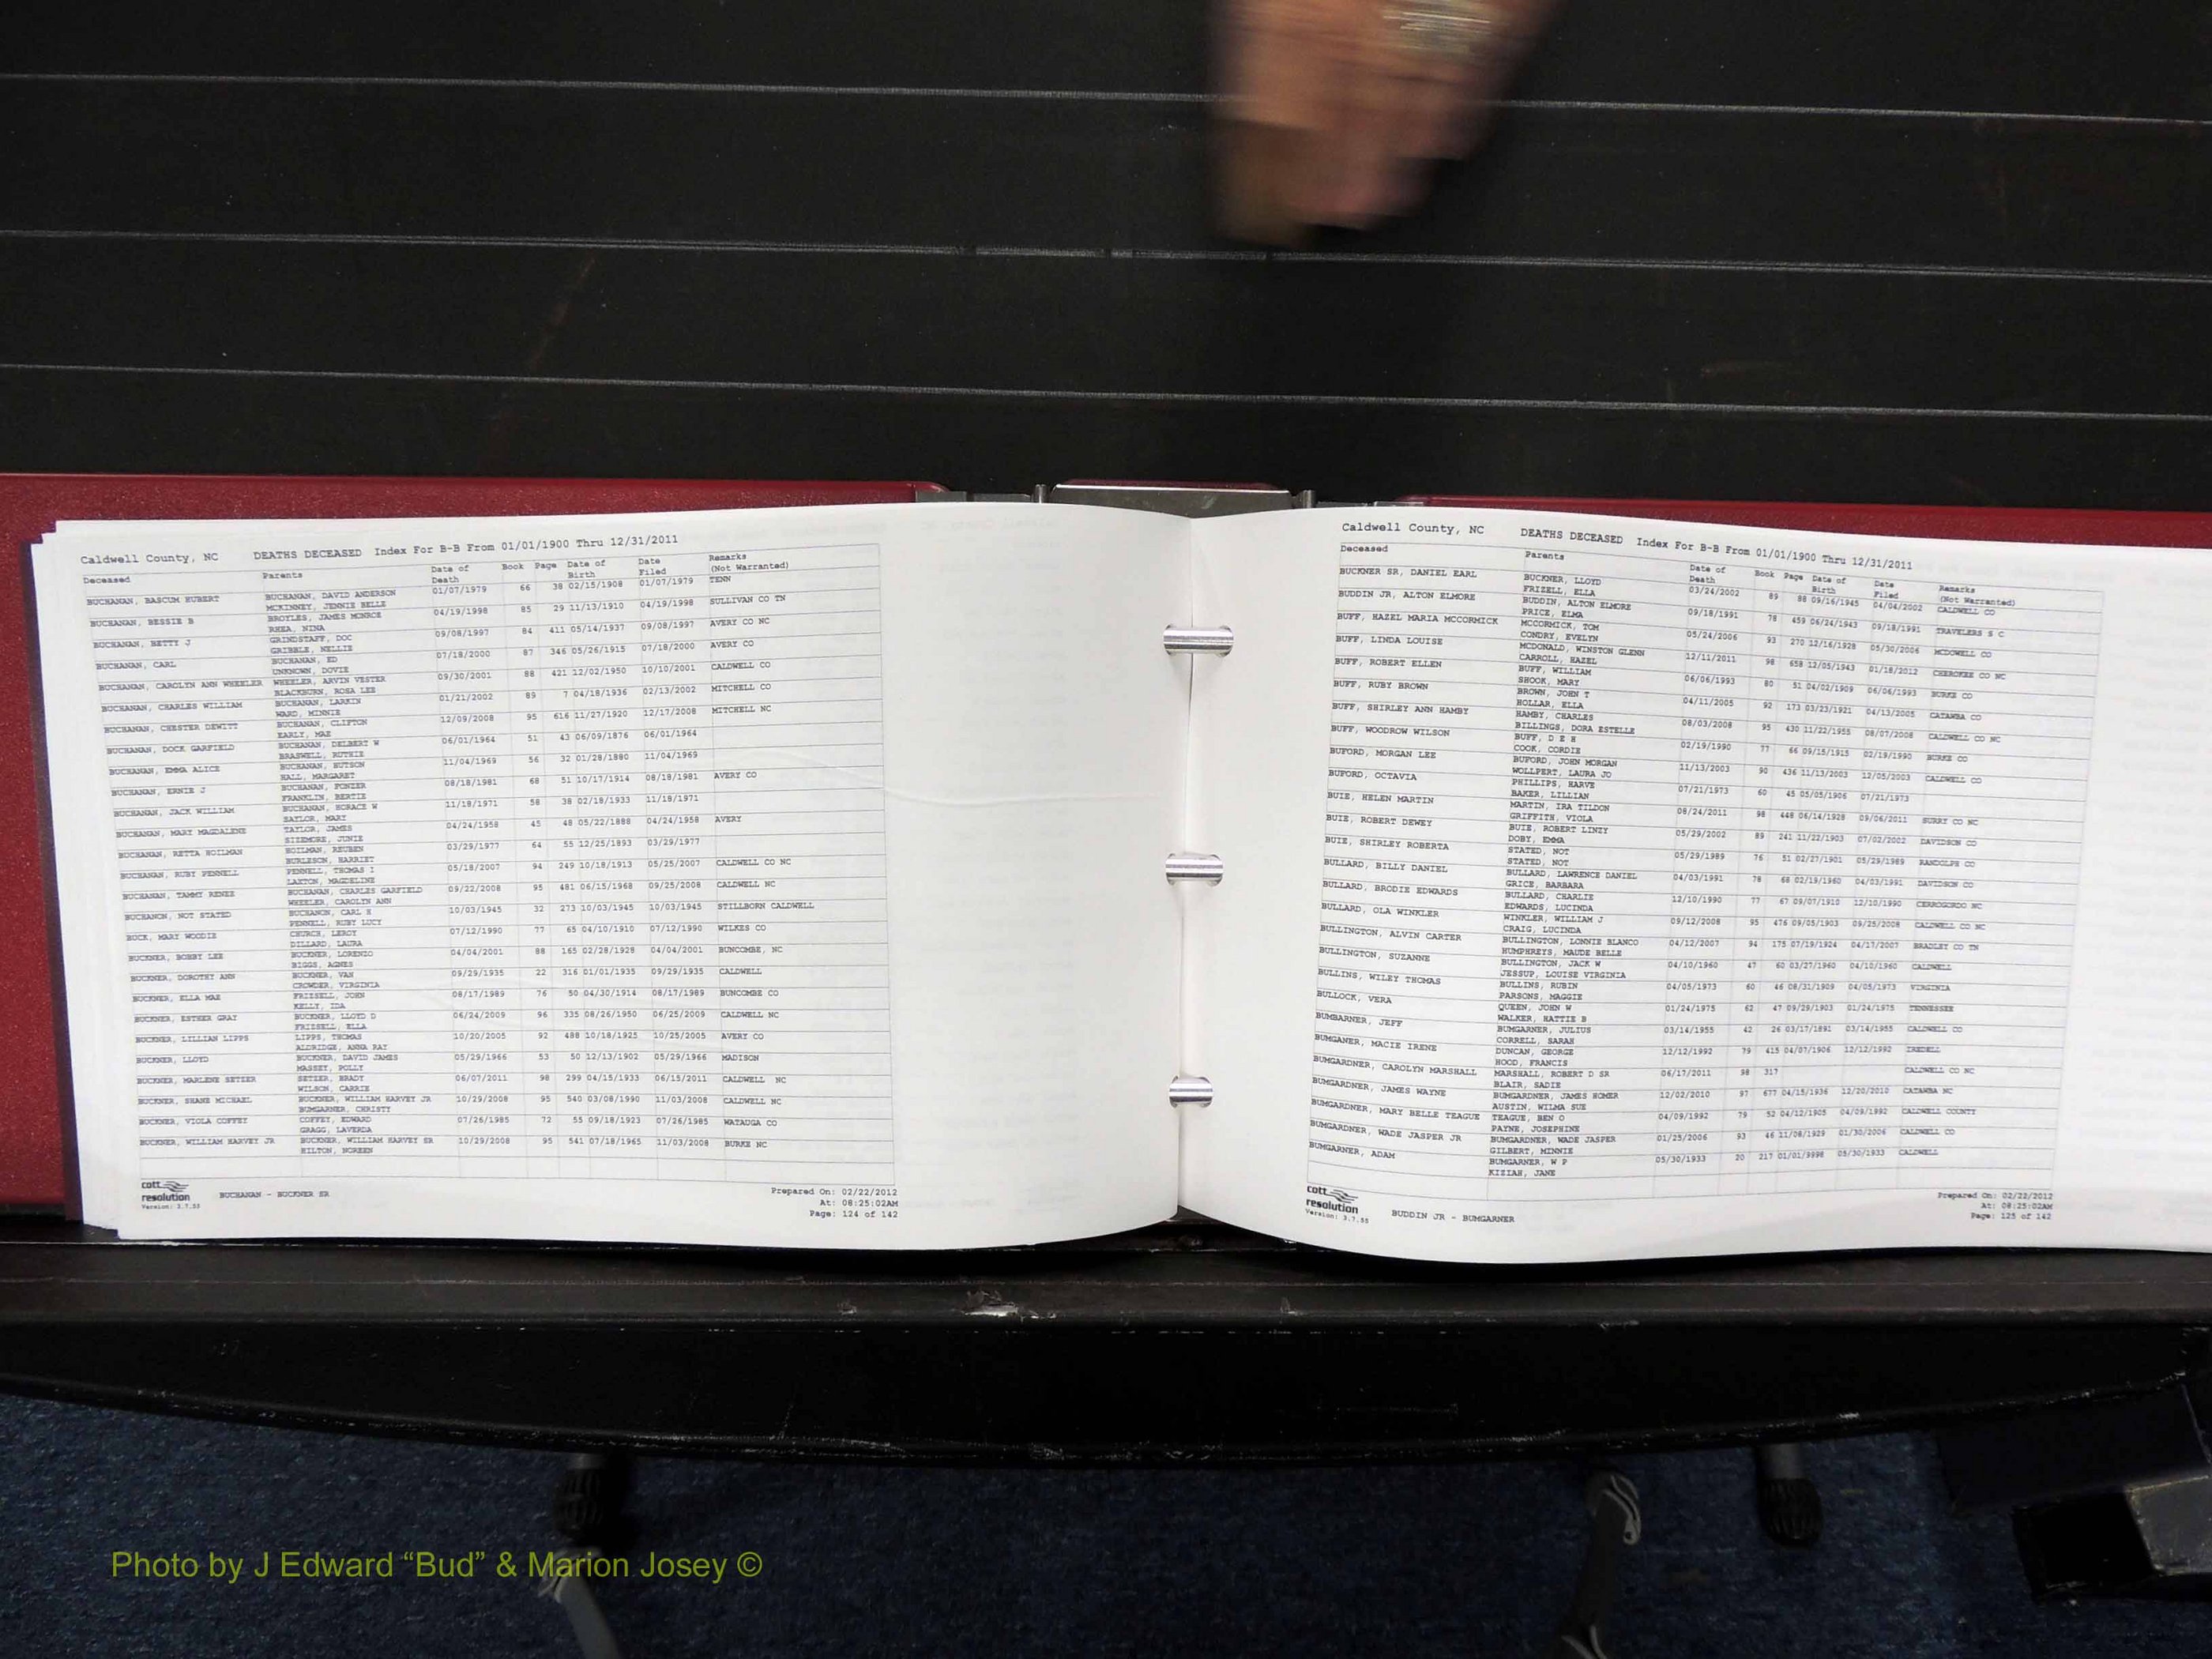 Caldwell County, NC DEATHS DECEASED Index For B-B From 01/01/1900 Thru 12/31/2011
Deceased Parents Date of Death Book Page Date of Birth Date Filed Remarks (Not Warranted)
BUCHANAN, BASCUM HUBERT BUCHANAN, DAVID ANDERSON 01/07/1979 66 38 02/15/1908 01/07/1979 TENN
MCKINNEY, JENNIE BELLE
BUCHANAN, BESSIE B BROYLES, JAMES MONROE 04/19/1998 85 29 11/13/1910 04/19/1998 SULLIVAN CO TN
RHEA, NINA
BUCHANAN, BETTY J GRINDSTAFF, DOC 09/08/1997 84 411 05/14/1937 09/08/1997 AVERY CO NC
GRIBBLE, NELLIE
BUCHANAN, CARL BUCHANAN, ED 07/18/2000 87 346 05/26/1915 07/18/2000 AVERY CO
UNKNOWN, DOVIE
BUCHANAN, CAROLYN ANN WHEELER WHEELER, ARVIN VESTER 09/30/2001 88 421 12/02/1950 10/10/2001 CALDWELL CO
BLACKBURN, ROSA LEE
BUCHANAN, CHARLES WILLIAM BUCHANAN, LARKIN 01/21/2002 89 7 04/18/1936 02/13/2002 MITCHELL CO
WARD, MINNIE
BUCHANAN, CHESTER DEWITT BUCHANAN, CLIFTON 12/09/2008 95 616 11/27/1920 12/17/2008 MITCHELL NC
EARLY, MAE
BUCHANAN, DOCK GARFIELD BUCHANAN, DELBERT W 06/01/1964 51 43 06/09/1876 06/01/1964
BRASWELL, RUTHIE
BUCHANAN, EMMA ALICE BUCHANAN, HUTSON 11/04/1969 56 32 01/28/1880 11/04/1969
HALL, MARGARET
BUCHANAN, ERNIE J BUCHANAN, FONZER 08/18/1981 68 51 10/17/1914 08/18/1981 AVERY CO
FRANKLIN, BERTIE
BUCHANAN, JACK WILLIAM BUCHANAN, HORACE W 11/18/1971 58 38 02/18/1933 11/18/1971
SAYLOR, MARY
BUCHANAN, MARY MAGDALENE TAYLOR, JAMES 04/24/1958 45 48 05/22/1888 04/24/1958 AVERY
SIZEMORE, JUNIE
BUCHANAN, RETTA HOILMAN HOILMAN, REUBEN 03/29/1977 64 55 12/25/1893 03/29/1977
BURLESON, HARRIET
BUCHANAN, RUBY PENNELL PENNELL, THOMAS I 05/18/2007 94 249 10/18/1913 05/25/2007 CALDWELL CO NC
LAXTON, MAGDELINE
BUCHANAN, TAMMY RENEE BUCHANAN, CHARLES GARFIELD 09/22/2008 95 481 06/15/1968 09/25/2008 CALDWELL NC
WHEELER, CAROLYN ANN
BUCHANON, NOT STATED BUCHANON, CARL H 10/03/1945 32 273 10/03/1945 10/03/1945 STILLBORN CALDWELL
PENNELL, RUBY LUCY
BOCK, MARY WOODIE CHURCH, LEROY 07/12/1990 77 65 04/10/1910 07/12/1990 WILKES CO
DILLARD, LAURA
BUCKNER, BOBBY LEE BUCKNER, LORENZO 04/04/2001 88 165 02/28/1928 04/04/2001 BUNCOMBE, NC
BIGGS, AGNES
BUCKNER, DOROTHY ANN BUCKNER, VAN 09/29/1935 22 316 01/01/1935 09/29/1935 CALDWELL
CROWDER, VIRGINIA
BUCKNER, ELLA MAE FRIZSELL, JOHN 08/17/1989 76 50 04/30/1914 08/17/1989 BUNCOMBE CO
KELLY, IDA
BUCKNER, ESTHER GRAY BUCKNER, LLOYD D 06/24/2009 96 335 08/26/1950 06/25/2009 CALDWELL NC
FRIZSELL, ELLA
BUCKNER, LILLIAN LIPPS LIPPS, THOMAS 10/20/2005 92 488 10/18/1925 10/25/2005 AVERY CO
ALDRIDGE, ANNA RAY
BUCKNER, LLOYD BUCKNER, DAVID JAMES 05/29/1966 53 50 12/13/1902 05/29/1966 MADISON
MASSEY, POLLY
BUCKNER, MARLENE SETZER SETZER, BRADY 06/07/2011 98 299 04/15/1933 06/15/2011 CALDWELL NC
WILSON, CARRIE
BUCKNER, SHANE MICHAEL BUCKNER, WILLIAM HARVEY JR 10/29/2008 95 540 03/08/1990 11/03/2008 CALDWELL NC
BUMGARNER, CHRISTY
BUCKNER, VIOLA COFFEY COFFEY, EDWARD 07/26/1985 72 55 09/18/1923 07/26/1985 WATAUGA CO
GRAGG, LAVERDA
BUCKNER, WILLIAM HARVEY JR BUCKNER, WILLIAM HARVEY SR 10/29/2008 95 541 07/18/1965 11/03/2008 BURKE NC
HILTON, NOREEN
cott resolution
Version: 3.7.55
BUCHANAN - BUCKNER SR
Prepared On: 02/22/2012
At: 08:25:02AM
Page: 124 of 142
Caldwell County, NC DEATHS DECEASED Index For B-B From 01/01/1900 Thru 12/31/2011
Deceased Parents Date of Death Book Page Date of Birth Date Filed Remarks (Not Warranted)
BUCKNER SR, DANIEL EARL BUCKNER, LLOYD 03/24/2002 89 88 09/16/1945 04/04/2002 CALDWELL CO
FRIZELL, ELLA
BUDDIN JR, ALTON ELMORE BUDDIN, ALTON ELMORE 09/18/1991 78 459 06/24/1943 09/18/1991 TRAVELERS S C
PRICE, ELMA
BUFF, HAZEL MARIA MCCORMICK MCCORMICK, TOM 05/24/2006 93 270 12/16/1928 05/30/2006 MCDOWELL CO
CONDRY, EVELYN
BUFF, LINDA LOUISE MCDONALD, WINSTON GLENN 12/11/2011 98 658 12/05/1943 01/18/2012 CHEROKEE CO NC
CARROLL, HAZEL
BUFF, ROBERT ELLEN BUFF, WILLIAM 06/06/1993 80 51 04/02/1909 06/06/1993 BURKE CO
SHOOK, MARY
BUFF, RUBY BROWN BROWN, JOHN T 04/11/2005 92 173 03/23/1921 04/13/2005 CATAWBA CO
HOLLAR, ELLA
BUFF, SHIRLEY ANN HAMBY HAMBY, CHARLES 08/03/2008 95 430 11/22/1955 08/07/2008 CALDWELL CO NC
BILLINGS, DORA ESTELLE
BUFF, WOODROW WILSON BUFF, D E H 02/19/1990 77 66 09/15/1915 02/19/1990 BURKE CO
COOK, CORDIE
BUFORD, MORGAN LEE BUFORD, JOHN MORGAN 11/13/2003 90 436 11/13/2003 12/05/2003 CALDWELL CO
WOLLPERT, LAURA JO
BUFORD, OCTAVIA PHILLIPS, HARVE 07/21/1973 60 45 05/05/1906 07/21/1973
BAKER, LILLIAN
BUIE, HELEN MARTIN MARTIN, IRA TILDON 08/24/2011 98 448 06/14/1928 09/06/2011 SURRY CO NC
GRIFFITH, VIOLA
BUIE, ROBERT DEWEY BUIE, ROBERT LINZY 05/29/2002 89 241 11/22/1903 07/02/2002 DAVIDSON CO
DOBY, EMMA
BUIE, SHIRLEY ROBERTA STATED, NOT 05/29/1989 76 51 02/27/1901 05/29/1989 RANDOLPH CO
STATED, NOT
BULLARD, BILLY DANIEL BULLARD, LAWRENCE DANIEL 04/03/1991 78 68 02/19/1960 04/03/1991 DAVIDSON CO
GRICE, BARBARA
BULLARD, BRODIE EDWARDS BULLARD, CHARLIE 12/10/1990 77 67 09/07/1910 12/10/1990 CERROGORDO NC
EDWARDS, LUCINDA
BULLARD, OLA WINKLER WINKLER, WILLIAM J 09/12/2008 95 476 09/05/1903 09/25/2008 CALDWELL CO NC
CRAIG, LUCINDA
BULLINGTON, ALVIN CARTER BULLINGTON, LONNIE BLANCO 04/12/2007 94 175 07/19/1924 04/17/2007 BRADLEY CO TN
HUMPHREYS, MAUDE BELLE
BULLINGTON, SUZANNE BULLINGTON, JACK W 04/10/1960 47 60 03/27/1960 04/10/1960 CALDWELL
JESSUP, LOUISE VIRGINIA
BULLINS, WILEY THOMAS BULLINS, RUBIN 04/05/1973 60 46 08/31/1909 04/05/1973 VIRGINIA
PARSONS, MAGGIE
BULLOCK, VERA QUEEN, JOHN W 01/24/1975 62 47 09/29/1903 01/24/1975 TENNESSEE
WALKER, HATTIE B
BUMBARNER, JEFF BUMGARNER, JULIUS 03/14/1955 42 26 03/17/1891 03/14/1955 CALDWELL CO
CORRELL, SARAH
BUMGANER, MACIE IRENE DUNCAN, GEORGE 12/12/1992 79 415 04/07/1906 12/12/1992 IREDELL
HOOD, FRANCIS
BUMGARDNER, CAROLYN MARSHALL MARSHALL, ROBERT D SR 06/17/2011 98 317 CALDWELL CO NC
BLAIR, SADIE
BUMGARDNER, JAMES WAYNE BUMGARDNER, JAMES HOMER 12/02/2010 97 677 04/15/1936 12/20/2010 CATAWBA NC
AUSTIN, WILMA SUE
BUMGARDNER, MARY BELLE TEAGUE TEAGUE, BEN O 04/09/1992 79 52 04/12/1905 04/09/1992 CALDWELL COUNTY
PAYNE, JOSEPHINE
BUMGARDNER, WADE JASPER JR BUMGARDNER, WADE JASPER 01/25/2006 93 46 11/08/1929 01/30/2006 CALDWELL CO
GILBERT, MINNIE
BUMGARNER, ADAM BUMGARNER, W P 05/30/1933 20 217 01/01/9998 05/30/1933 CALDWELL
KIZIAH, JANE
cott resolution
Version: 3.7.55
BUDDIN JR - BUMGARNER
Prepared On: 02/22/2012
At: 08:25:02AM
Page: 125 of 142
Photo by J Edward “Bud” & Marion Josey ©